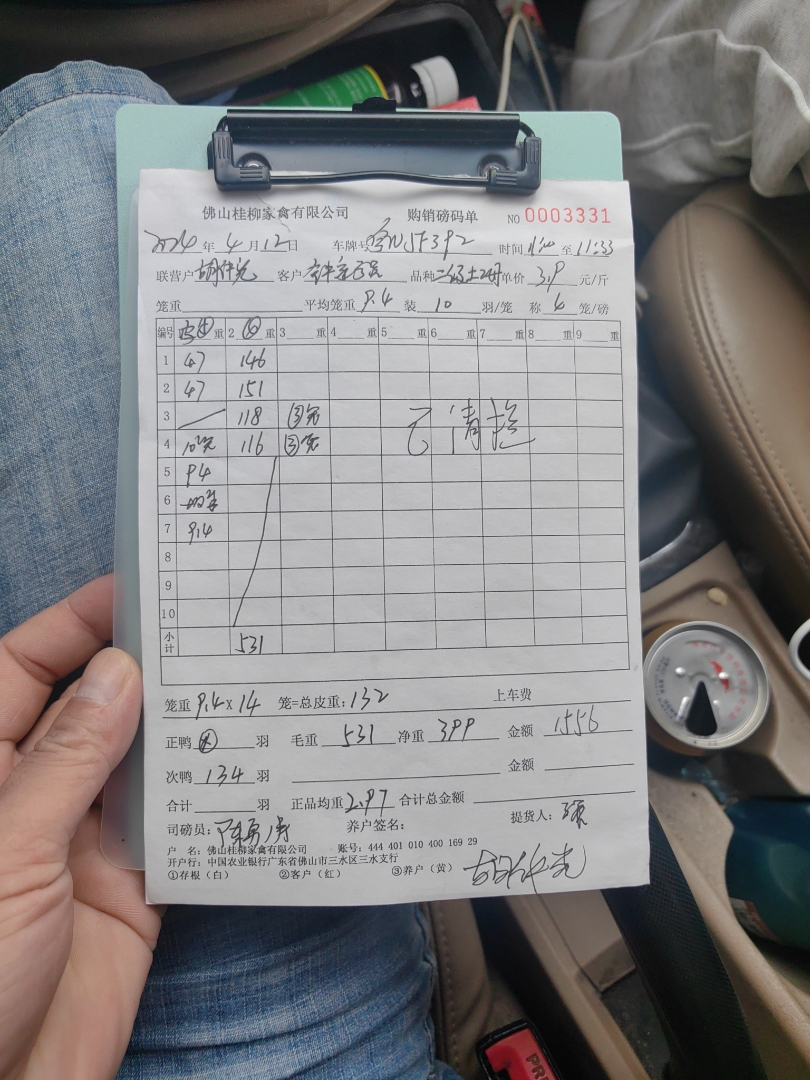 佛山桂柳家禽有限公司 购销磅码单 NO 0003331
2024 年 4 月 12 日 车牌号 时间 至 11:33
联营户 客户 品种 单价 3.9 元/斤
笼重 平均笼重 9.4 装 10 羽/笼 称 笼/磅
编号 重 2 重 3 重 4 重 5 重 6 重 7 重 8 重 9 重
1 47 146
2 47 151
3 118 已清抢
4 116
5 94
6
7 9.4
8
9
10
小计 531
笼重 9.4 x 14 笼=总皮重: 132 上车费
正鸭 羽 毛重 531 净重 399 金额 1556
次鸭 134 羽 金额
合计 羽 正品均重 2.97 合计总金额
司磅员: 养户签名: 提货人:
户 名: 佛山桂柳家禽有限公司 账号: 444 401 010 400 169 29
开户行: 中国农业银行广东省佛山市三水区三水支行
①存根（白） ②客户（红） ③养户（黄）